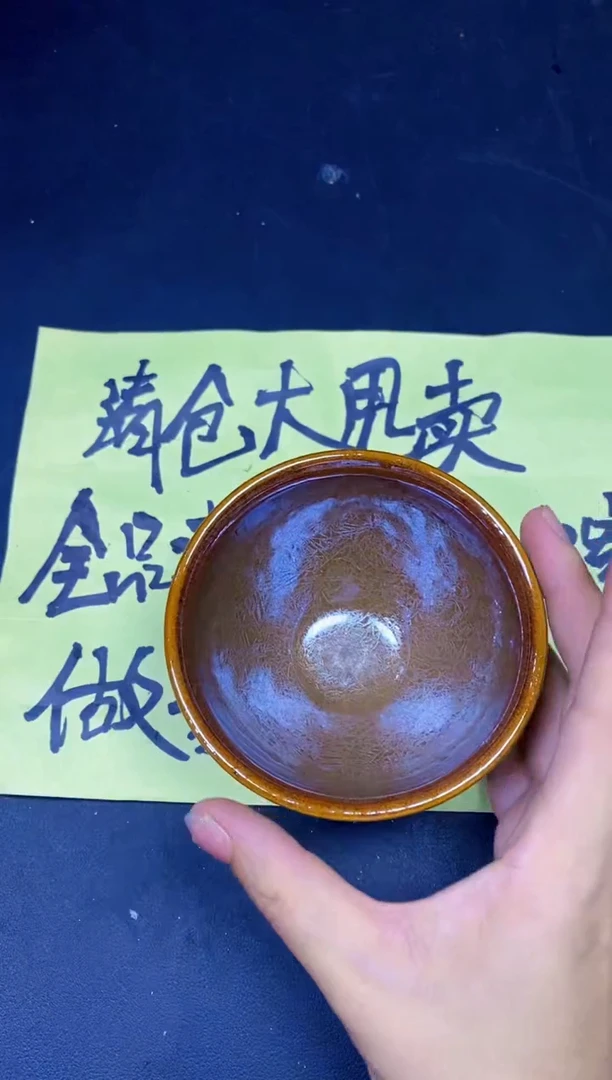 清仓大甩卖
全品
做